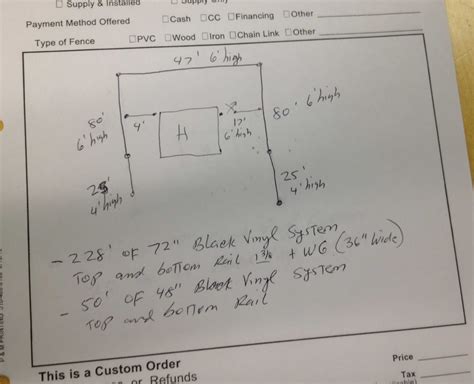 ☐ Supply & Installed ☐ Supply Only
Payment Method Offered ☐Cash ☐CC ☐Financing ☐Other
Type of Fence ☐PVC ☐Wood ☐Iron ☐Chain Link ☐Other
47' 6' high
80'
6' high
4'
H
X
17'
6' high
80' 6' high
25'
4' high
25'
4' high
- 228' of 72" Black Vinyl System
Top and bottom Rail 1 3/8 + WG (36" Wide)
- 50' of 48" Black Vinyl System
Top and bottom Rail
This is a Custom Order
or Refunds
Price
Tax